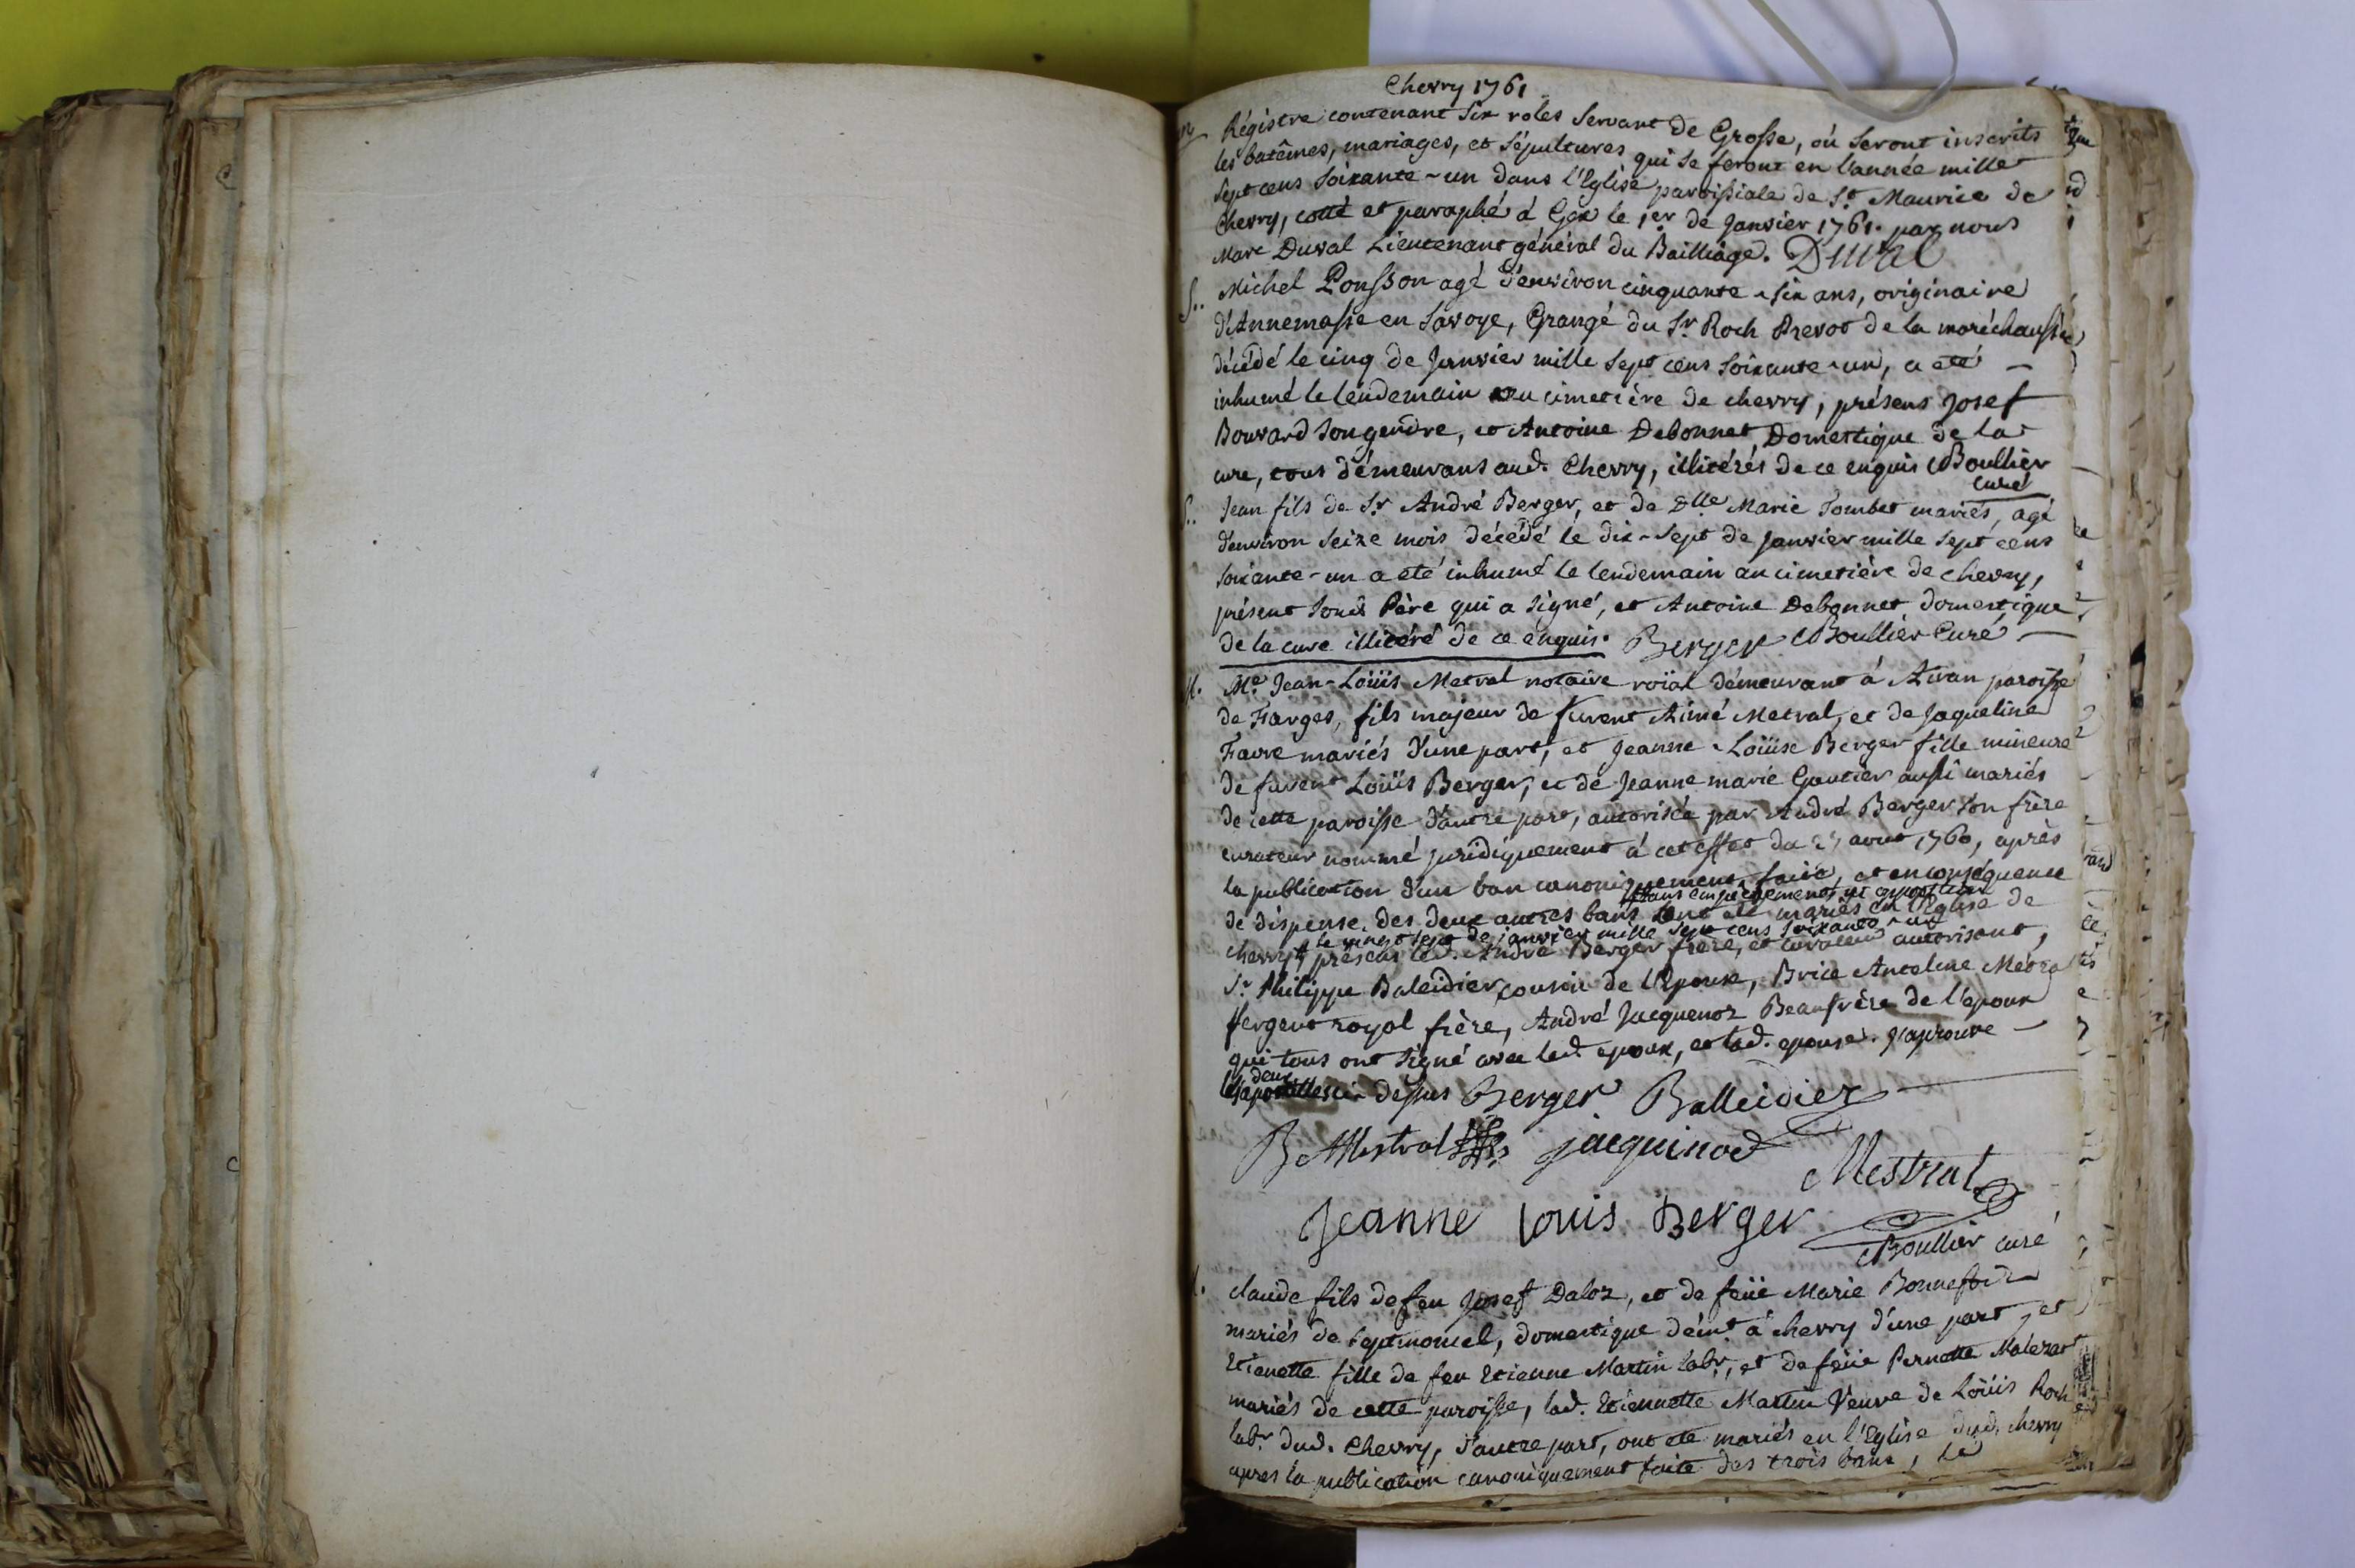 Chevry 1761
Régistre contenant six roles servant de Grosse, où seront inscrits
les batêmes, mariages, et sépultures qui se feront en l'année mille
sept cens soixante-un dans l'Eglise paroissiale de St. Maurice de
Chevry, cotté et paraphé à Gex le 1er de Janvier 1761. par nous
Marc Duval Lieutenant général du Bailliage. Duval
S.. Michel Ponsson agé d'environ cinquante-six ans, originaire
d'Annemasse en Savoye, Grangé du Sr. Roch Prevot de la maréchaussée
décédé le cinq de Janvier mille sept cens soixante-un, a eté
inhumé le lendemain au cimetière de chevry, présens Josef
Bouvard son gendre, et Antoine Debonnet Domestique de la
cure, tous démeurans aud. Chevry, illitérés de ce enquis Boullier
curé
S.. Jean fils de Sr André Berger, et de Dlle Marie Tombet mariés, agé
d'environ seize mois décédé le dix-sept de Janvier mille sept cens
soixante-un a eté inhumé le lendemain au cimetière de chevry,
présent Père qui a signé, et Antoine Debonnet domestique
de la cure illitéré de ce enquis. Berger Boullier Curé
M. Me. Jean-Loüis Metral notaire roïal démeurant à Airan paroisse
de Farges, fils majeur de furent Aimé Metral, et de Jaqueline
Favre mariés d'une part, et Jeanne-Loüise Berger fille mineure
de furent Loüis Berger, et de Jeanne marie Gautier aussi mariés
de cette paroisse d'autre part, autorisée par André Berger son frère
curateur nommé juridiquement à cet effet du aout 1760, après
la publication d'un ban canoniquement faite, et en conséquence
sans empechement ni opposition
de dispense des deux autres bans ont eté mariés en l'Eglise de
le vingt sept de janvier mille sept cens soixante-un
chevry présens led. André Berger frère, et curateur autorisant,
Sr. Philippe Baleidier cousin de l'Epouse, Brice Antelme Métral
sergent royal frère, André Jacquenoz Beaufrère de l'epoux
qui tous ont signé avec led. epoux, et lad. epouse. j'aprouve
deux
les apostilles ci-dessus Berger Balleidier
B A Mestral jacquinod
Mestral
Jeanne louis Berger
Boullier curé
M. claude fils de feu Josef Daloz, et de feüe Marie Bonnefoid
mariés de septmoncel, domestique démt à chevry d'une part, et
Etienette fille de feu Etienne Martin labr., et de feüe Pernette Malezat
mariés de cette paroisse, lad. Etiennette Martin Veuve de Loüis Roch
labr. dud. Chevry, d'autre part, ont eté mariés en l'Eglise dud. chevry
apres la publication canoniquement faite des trois bans, le